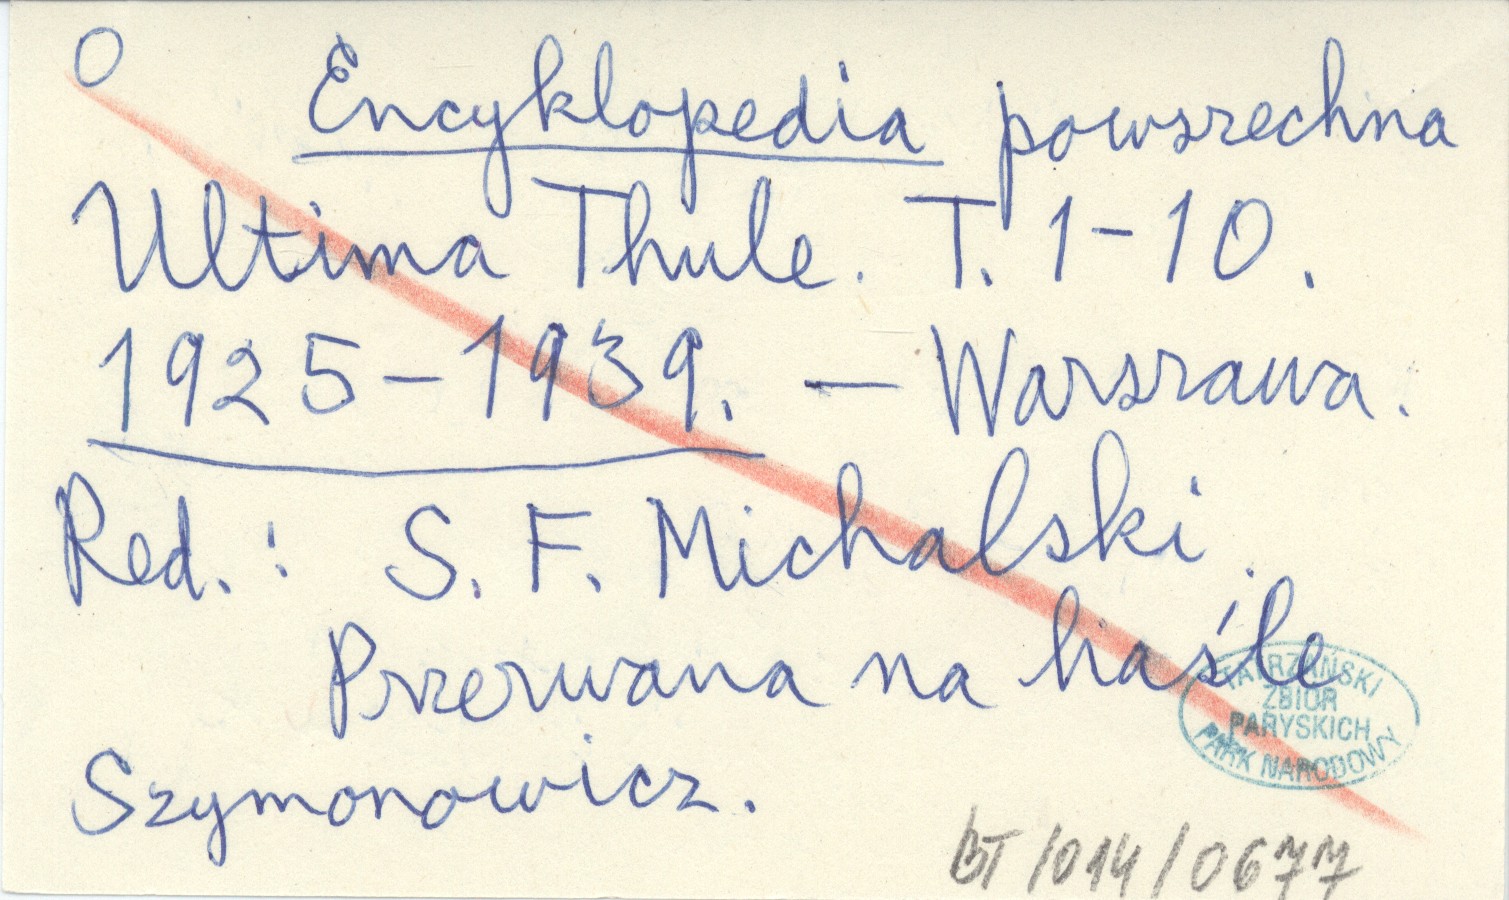 O Encyklopedia powszechna
Ultima Thule. T. 1-10.
1925-1939. — Warszawa.
Red.: S. F. Michalski.
Przerwana na haśle
Szymonowicz.
TATRZAŃSKI
ZBIÓR
PARYSKICH
PARK NARODOWY
BT/014/0677